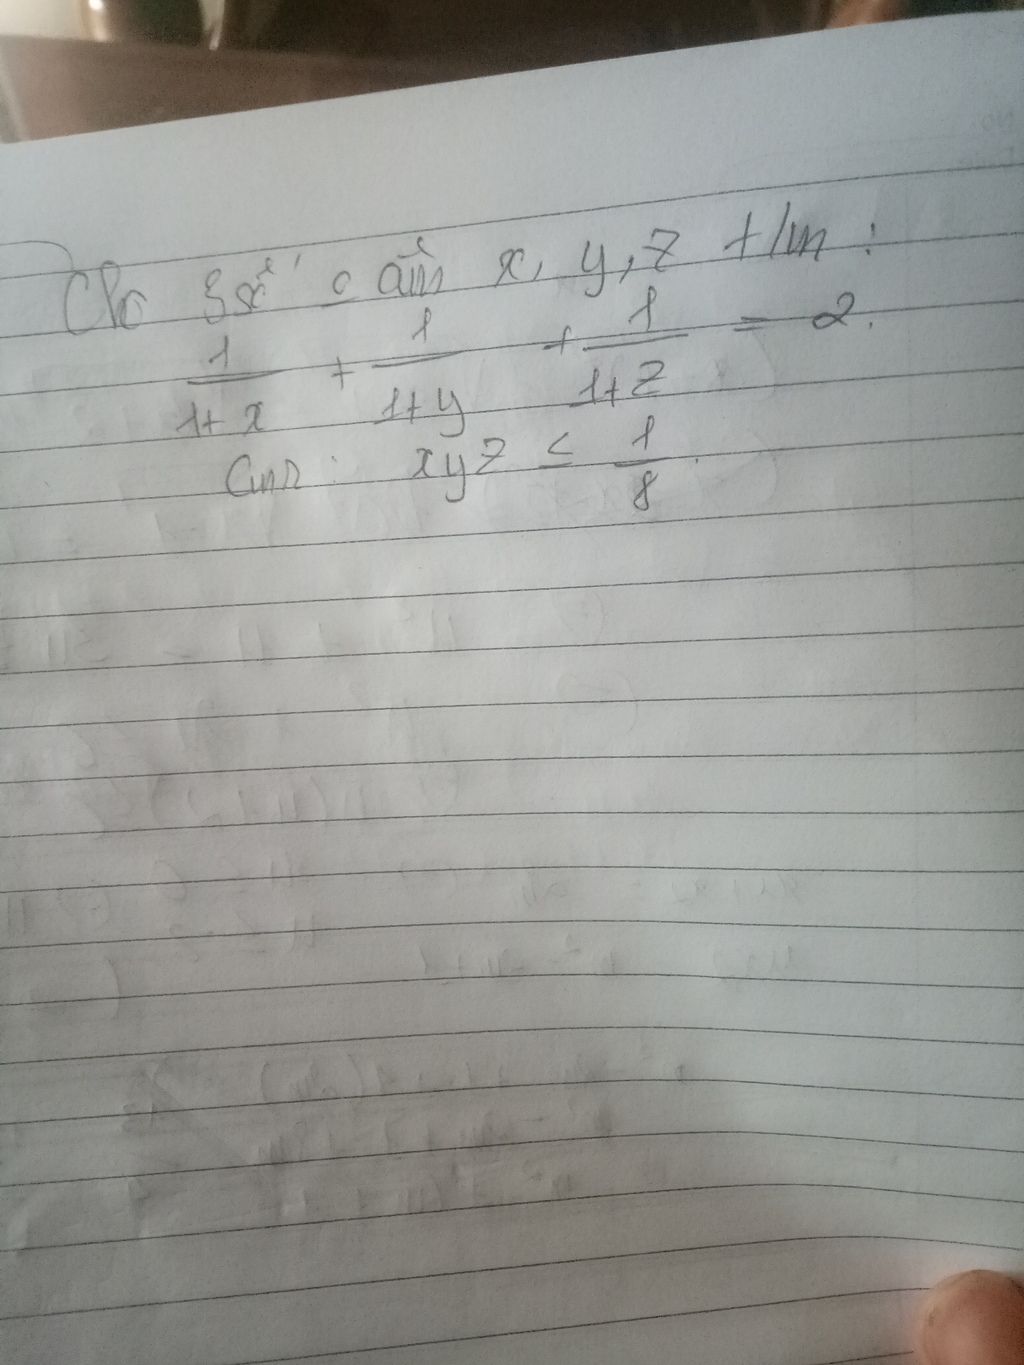 Cho 3 số x, y, z t/m:
1/(1+x) + 1/(1+y) + 1/(1+z) = 2.
CMR: xyz ≤ 1/8.